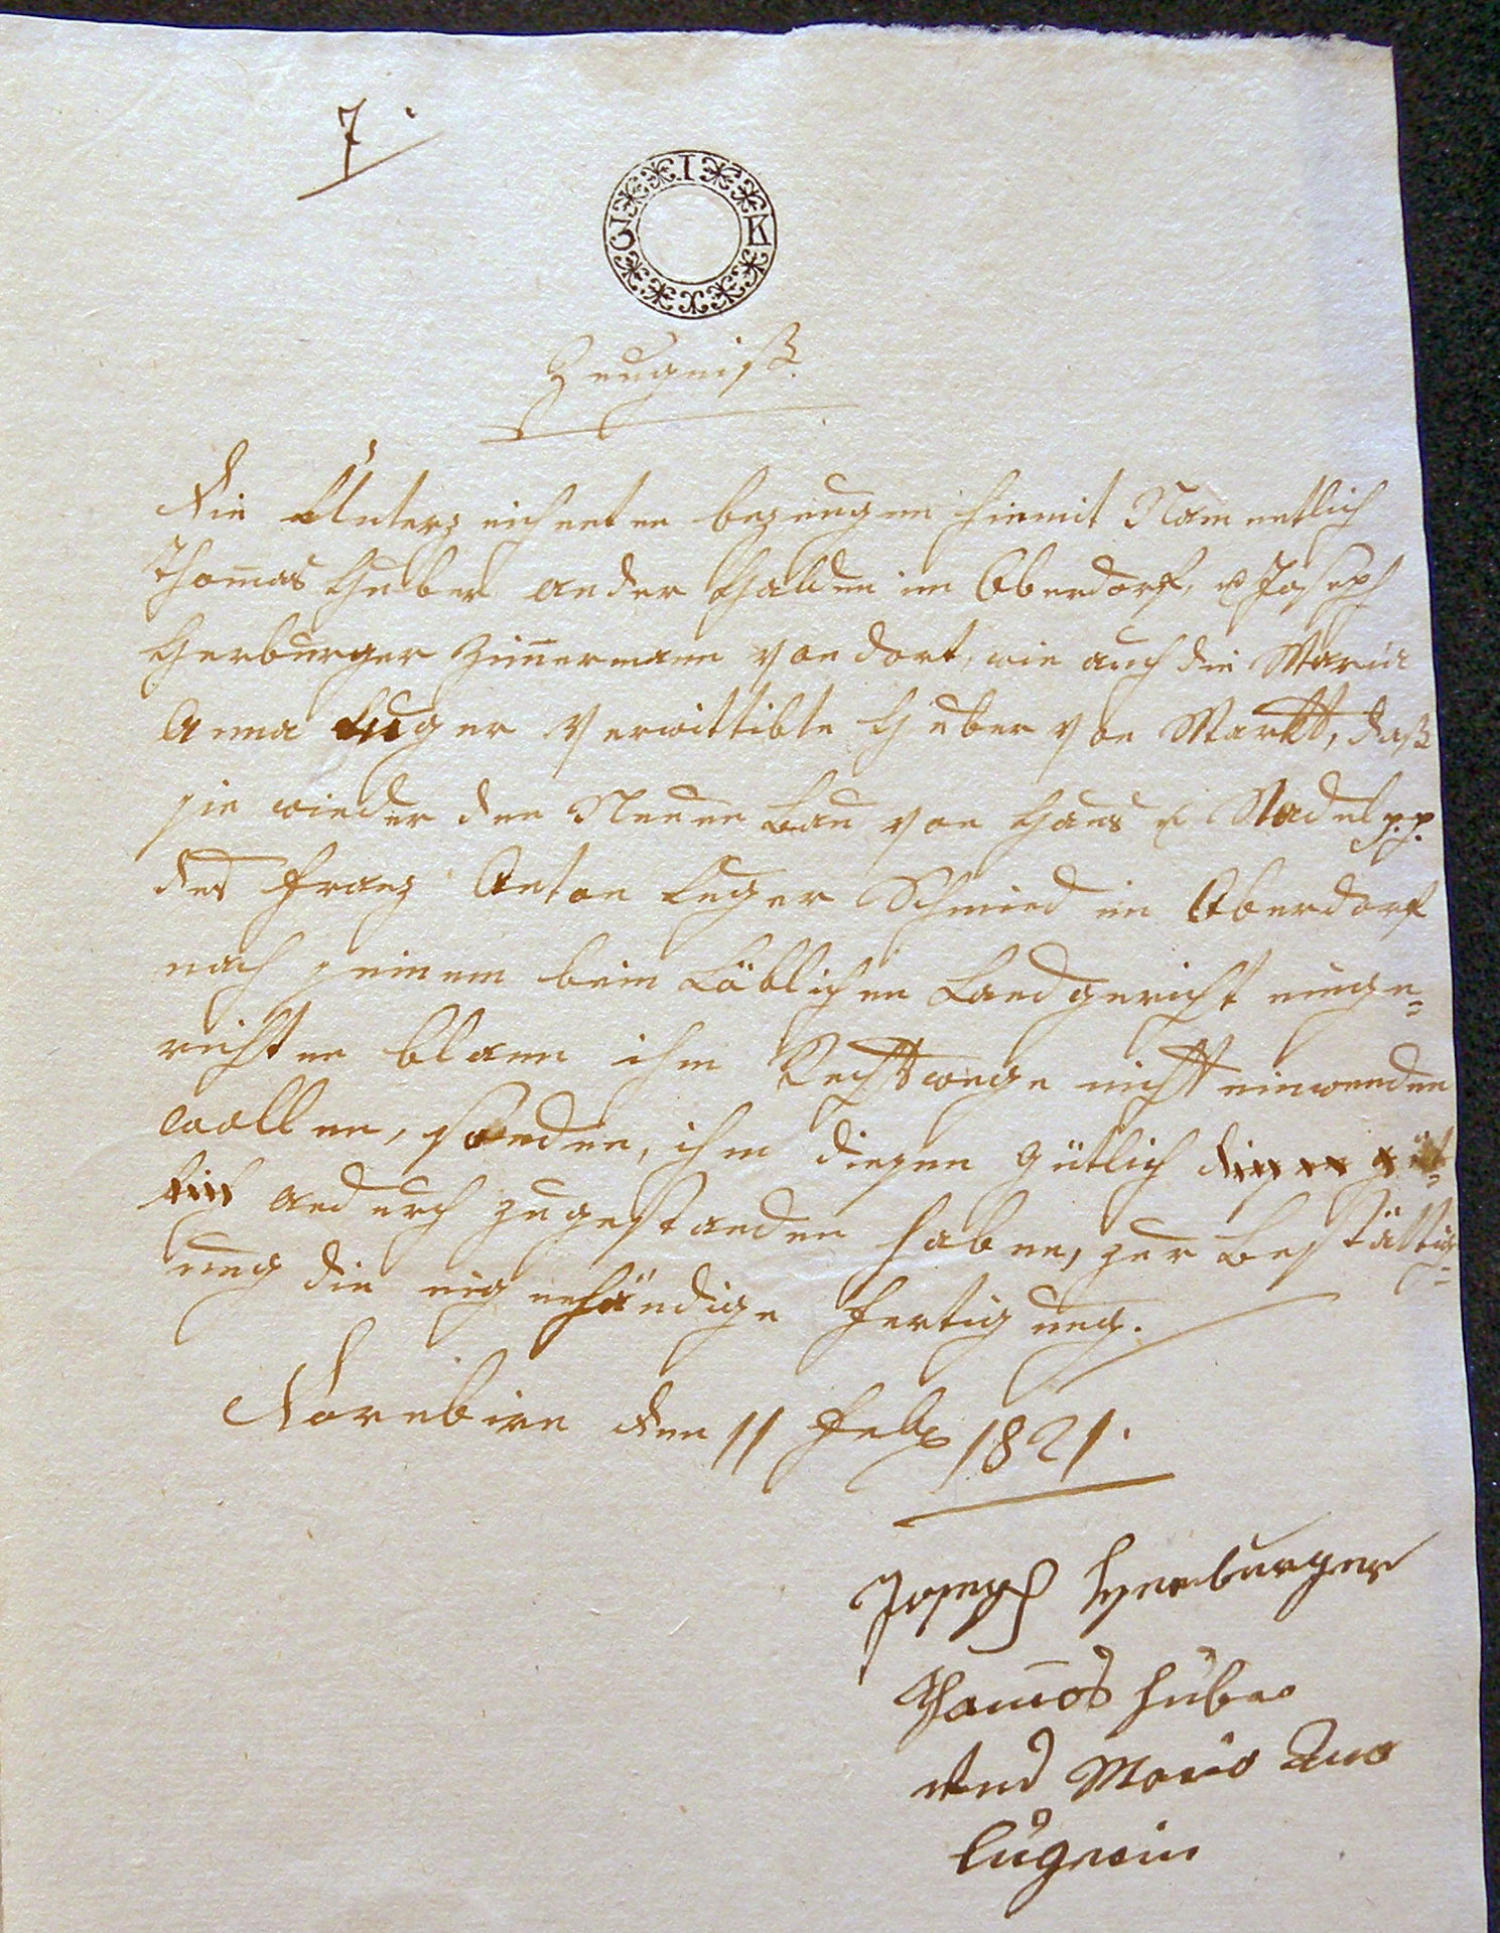 7.
I K 3
Zeugniß.
Die Unterzeichneten bezeugen hiemit Namentlich
Thomas Huber an der Halden im Oberdorf, u Joseph
Herburger Zimmermann von dort, wie auch die Maria
Anna Luger Verwittibte Huber von Markt, daß
sie wieder den Neuen Bau von Haus u Stadel p.p.
des Franz Anton Luger Schmied im Oberdorf
nach seinem beim Löblichen Landgericht einge=
richten blann ihm Rechtswege nicht einwenden
wollen, sonden, ihm diesen gütlich
andurch zugestanden haben, zur Bestättig=
ung die eigenhändige Fertigung.
Dornbirn den 11 Feb 1821.
Joseph Herburger
Thomas Huber
und Maria Ana
Lugerin